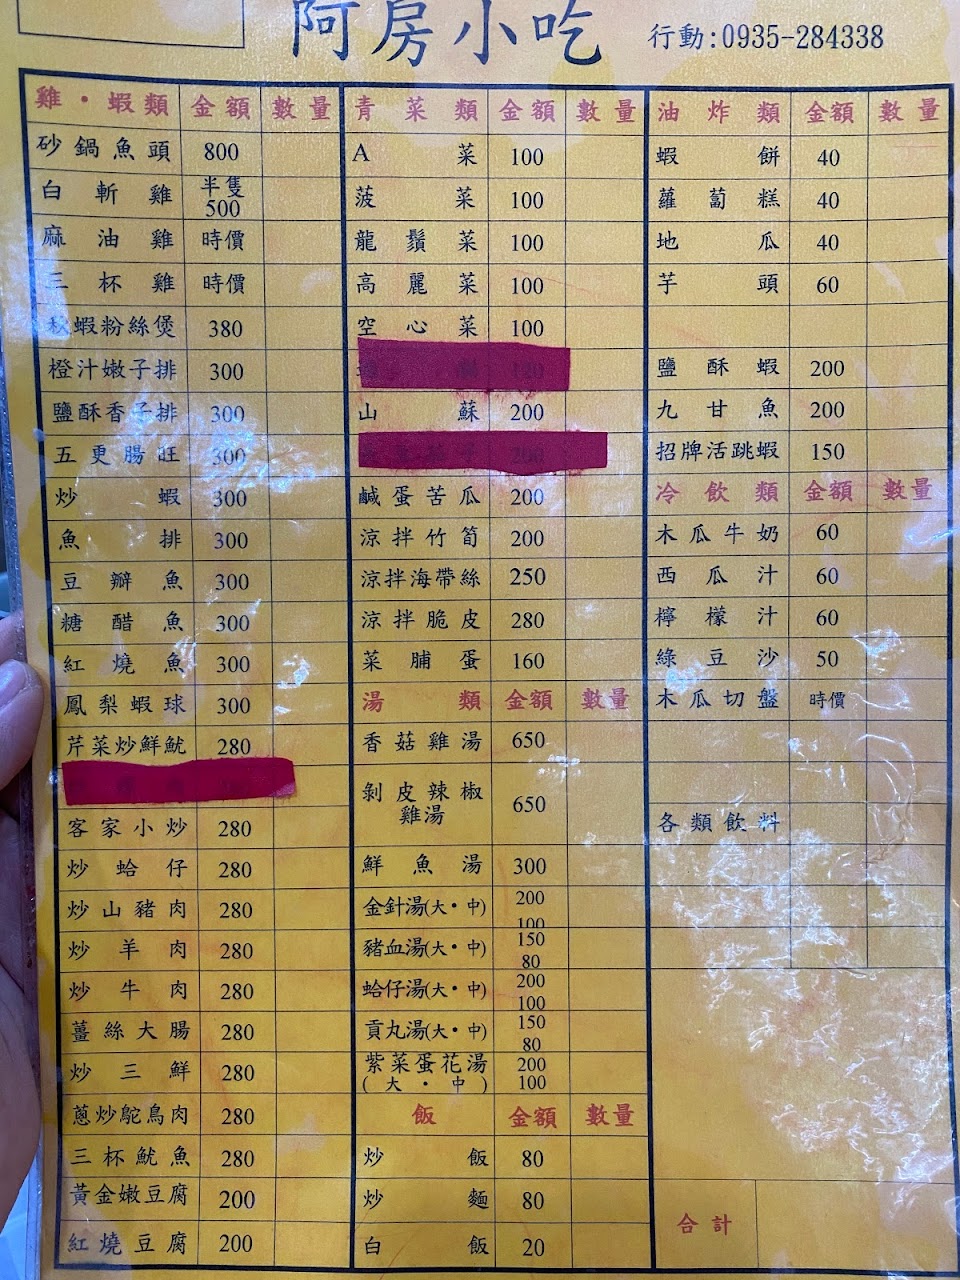 阿房小吃
行動:0935-284338
雞・蝦類 金額 數量
砂鍋魚頭 800
白斬雞 半隻500
麻油雞 時價
三杯雞 時價
蝦粉絲煲 380
橙汁嫩子排 300
鹽酥香子排 300
五更腸旺 300
炒蝦 300
魚排 300
豆瓣魚 300
糖醋魚 300
紅燒魚 300
鳳梨蝦球 300
芹菜炒鮮魷 280
客家小炒 280
炒蛤仔 280
炒山豬肉 280
炒羊肉 280
炒牛肉 280
薑絲大腸 280
炒三鮮 280
蔥炒鴕鳥肉 280
三杯魷魚 280
黃金嫩豆腐 200
紅燒豆腐 200
青菜類 金額 數量
A菜 100
菠菜 100
龍鬚菜 100
高麗菜 100
空心菜 100
120
山蘇 200
200
鹹蛋苦瓜 200
涼拌竹筍 200
涼拌海帶絲 250
涼拌脆皮 280
菜脯蛋 160
湯類 金額 數量
香菇雞湯 650
剝皮辣椒
雞湯 650
鮮魚湯 300
金針湯(大・中) 200 100
豬血湯(大・中) 150 80
蛤仔湯(大・中) 200 100
貢丸湯(大・中) 150 80
紫菜蛋花湯 200
(大・中) 100
飯 金額 數量
炒飯 80
炒麵 80
白飯 20
油炸類 金額 數量
蝦餅 40
蘿蔔糕 40
地瓜 40
芋頭 60
鹽酥蝦 200
九甘魚 200
招牌活跳蝦 150
冷飲類 金額 數量
木瓜牛奶 60
西瓜汁 60
檸檬汁 60
綠豆沙 50
木瓜切盤 時價
各類飲料
合計